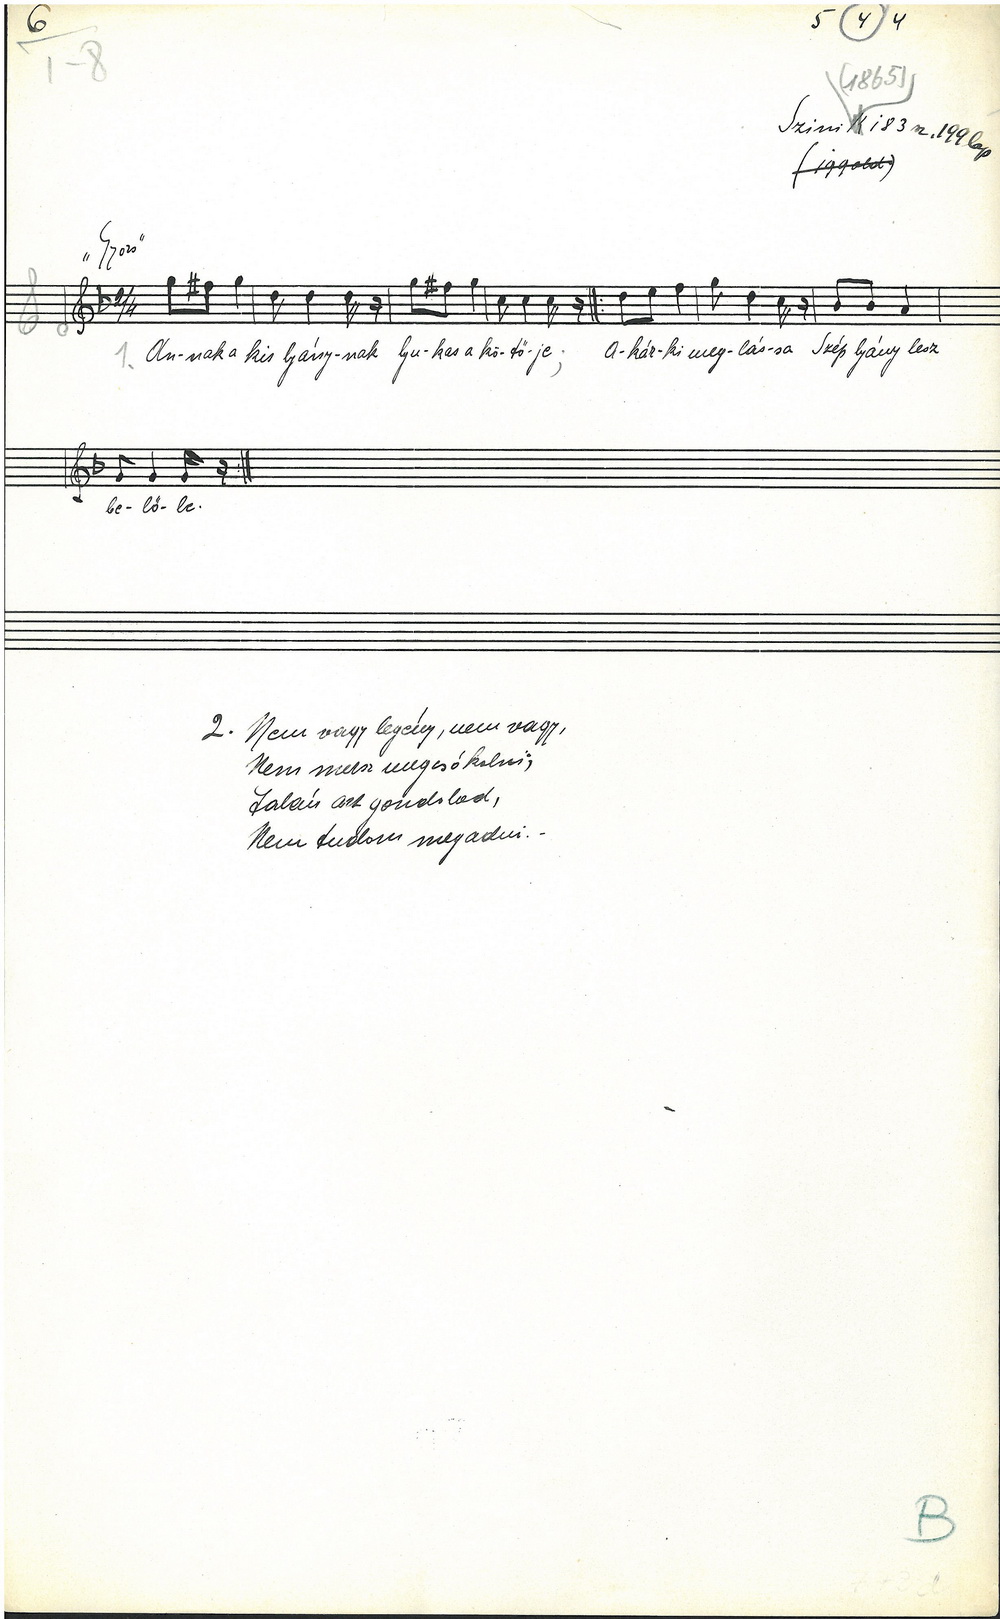 6
1-8
5 4 4
(1865)
Szini K 183 sz. 199 lap
"Gyors"
1. An-nak a kis lyány-nak lyu-kas a kö-tő-je; A-kár-ki meg-lás-sa Szép lyány lesz
be-lő-le.
2. Nem vagy legény, nem vagy,
Nem mersz megcsókolni;
Talán azt gondolod,
Nem tudom megadni.-
B